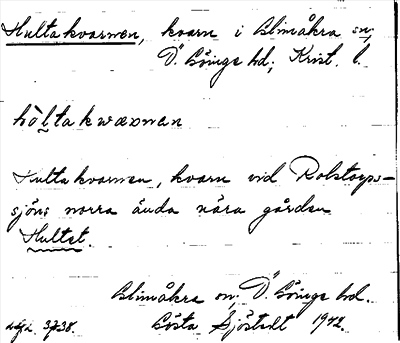 Hultakvarnen, kvarn i Glimåkra sn,
Ö. Göinge hd; Krist. l.
hòltakwæɳan
Hultakvarnen, kvarn vid Rolstorps-
sjöns norra ända nära gården
Hultet.
Glimåkra sn, Ö. Göinge hd.
Gösta Sjöstedt 1942.